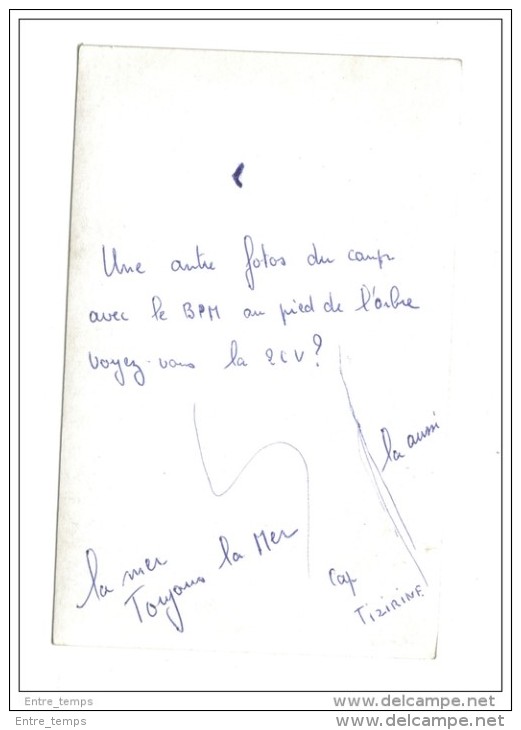 Une autre fotos du camp
avec le BPM au pied de l'arbre
voyez-vous la 2CV?
la aussi
la mer
Toujours la Mer
Cap
TIZIRINE
Entre_temps
www.delcampe.net
Entre_temps
www.delcampe.net